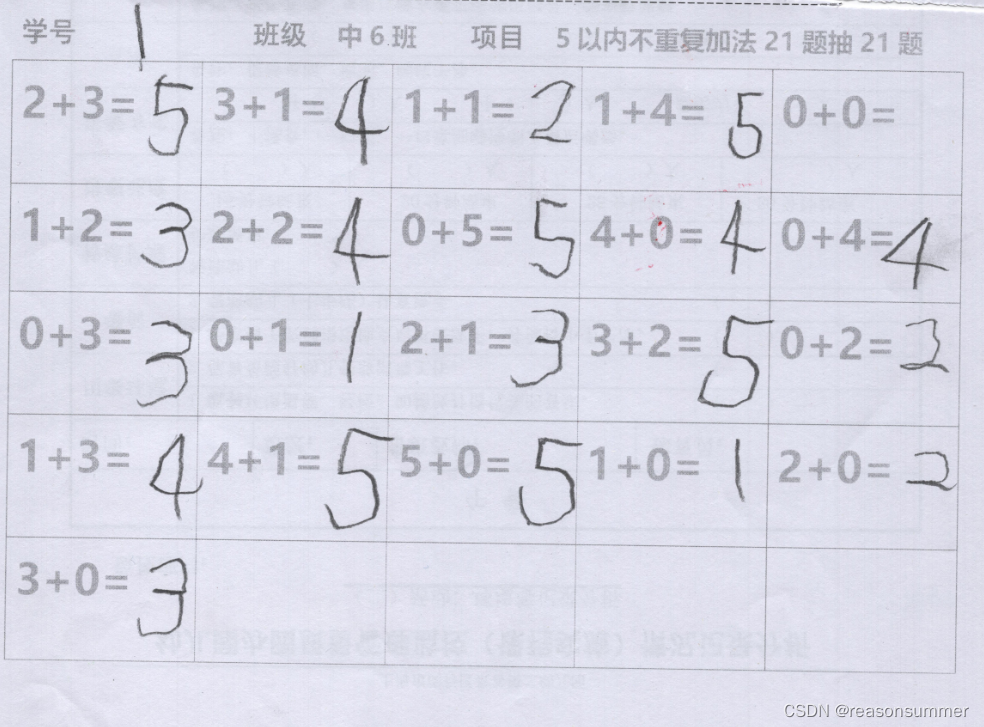 学号 1 班级 中6班 项目 5以内不重复加法21题抽21题
2+3=5 3+1=4 1+1=2 1+4=5 0+0=
1+2=3 2+2=4 0+5=5 4+0=4 0+4=4
0+3=3 0+1=1 2+1=3 3+2=5 0+2=2
1+3=4 4+1=5 5+0=5 1+0=1 2+0=2
3+0=3
CSDN @reasonsummer